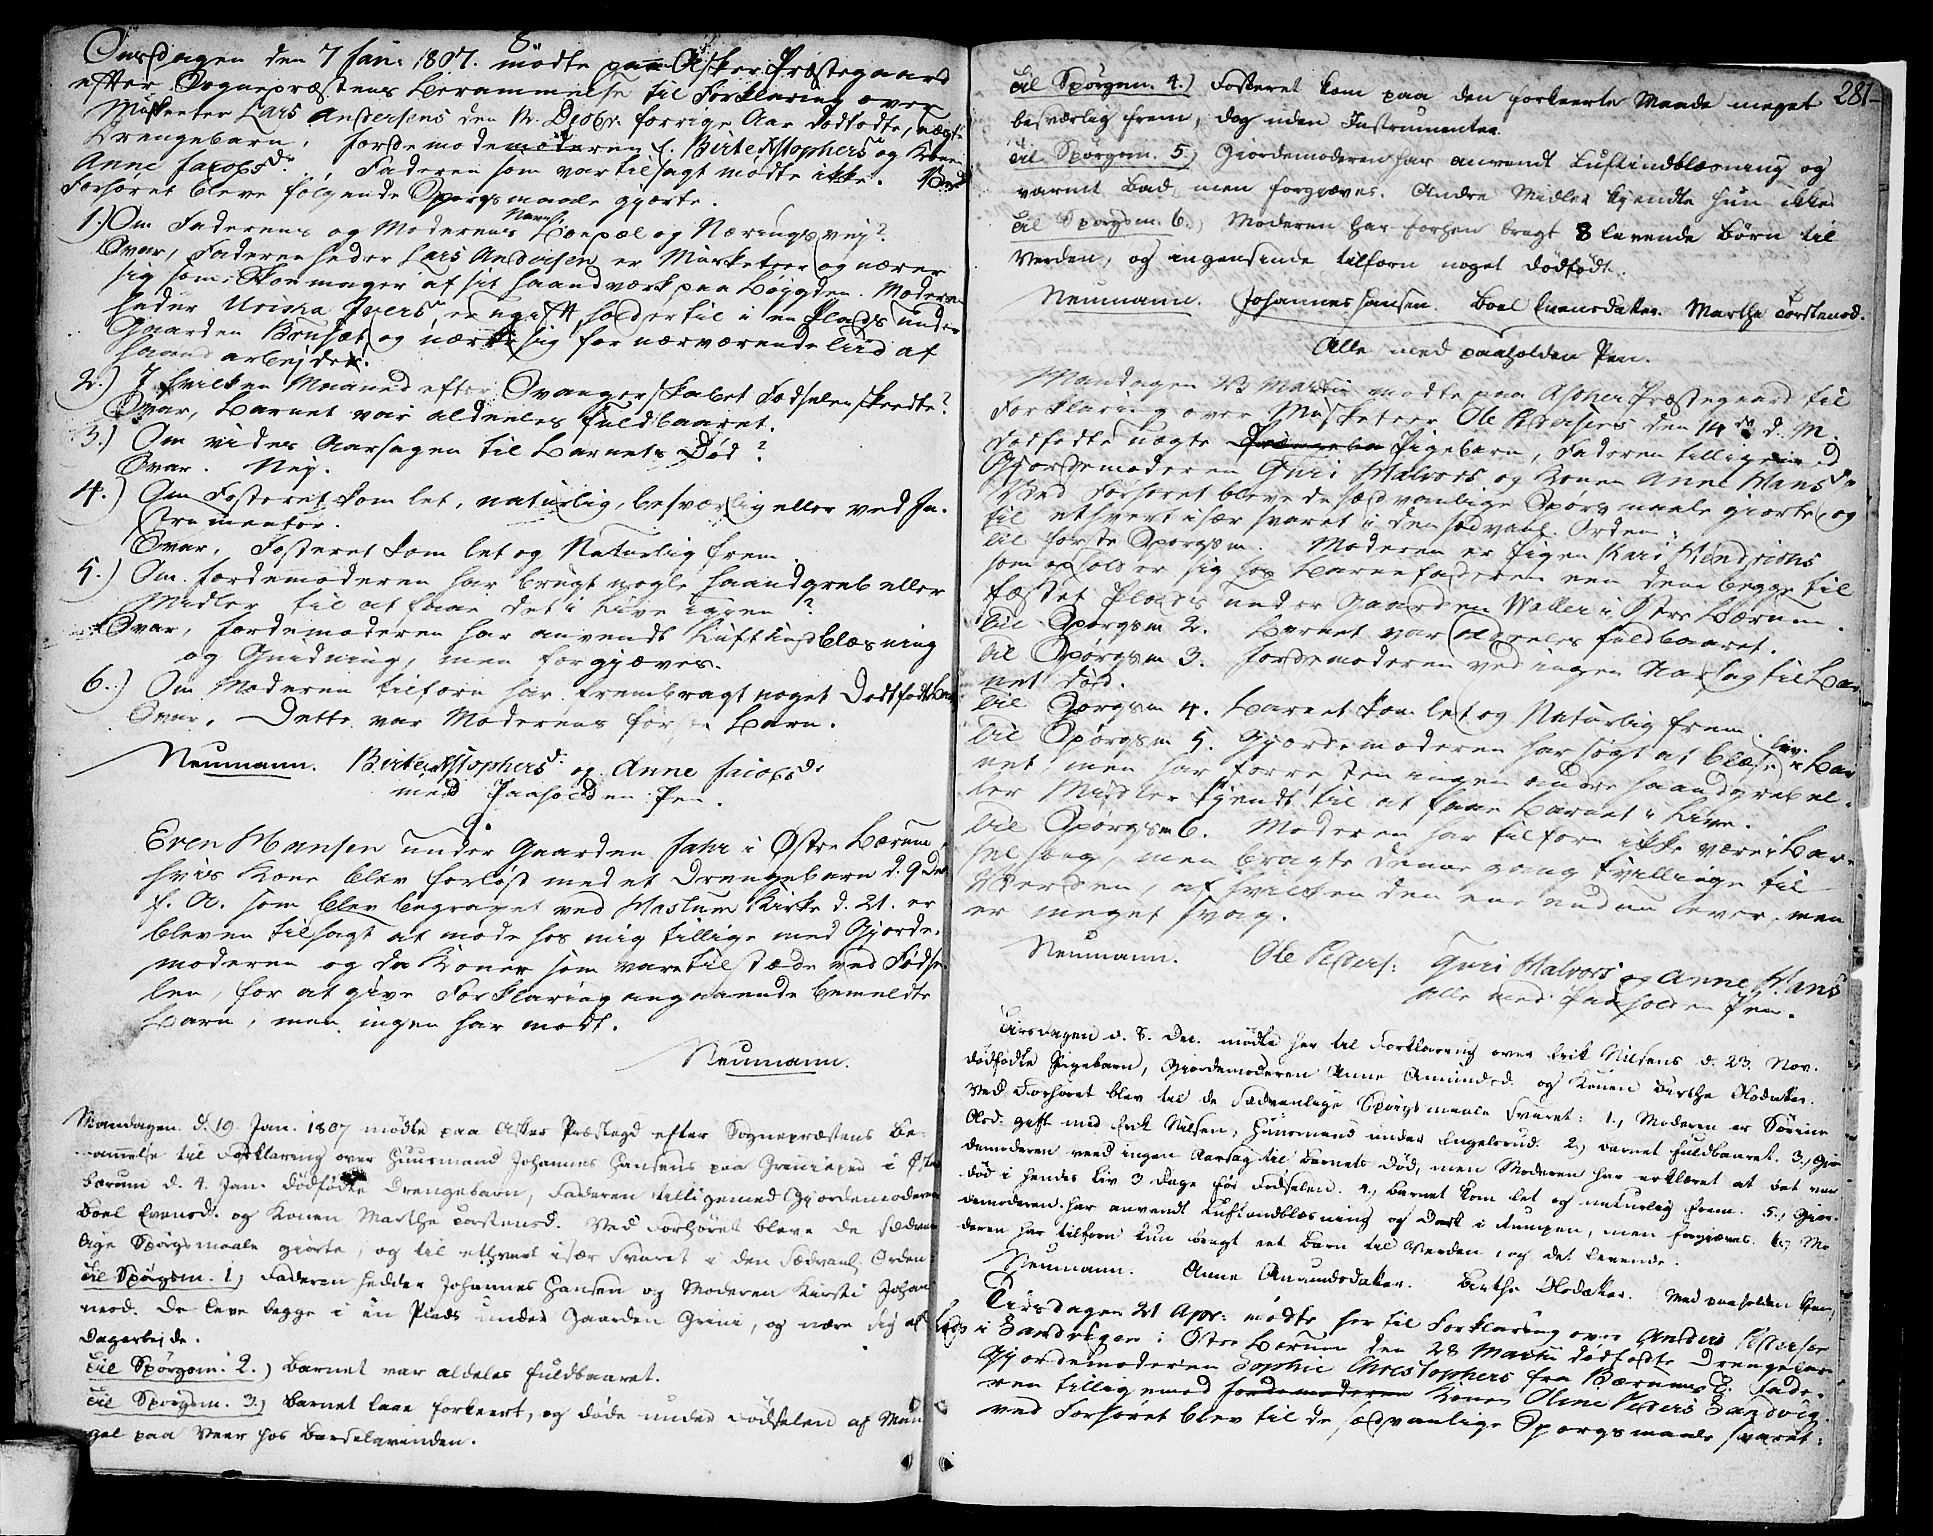 8
Onsdagen den 7 Jan: 1807. mødte paa Asker Præstegaard
efter Sognepræstens Berammelse til Forklaring over
Musketeer Lars Andersens den 12. Decbr. forrige Aar dødfødte, uægte
Drengebarn, Jordemoderen f. Birte Xstophersd. og Konen
Anne Jacobsdr., Faderen som var tilsagt mødte ikke. Ved
Forhøret bleve følgende Spørgsmaale gjorte.
1.) Om Faderens og Moderens Navne Boepæl og Næringsvej?
Svar, Faderen heder Lars Andersen er Musketeer og nærer
sig som Skomager af sit Haandværk paa Bøygden. Moderen
heder Ursika Ivers, er ugift, holder til i en Plads under
Gaarden Brusæt og nærer sig for nærværende tiid af
Haandarbejder.
2.) I hvilken Maaned efter Svangerskabet Fødselen skeedte?
Svar, Barnet var aldeeles fuldbaaret.
3.) Om vides Aarsagen til Barnets Død?
Svar. Nej.
4.) Om Fosteret kom let, naturlig, besværlig eller ved In-
strumenter.
Svar, Fosteret kom let og Naturlig frem.
5.) Om Jordemoderen har brugt nogle Haandgreb eller
Midler til at faae det i Live igjen?
Svar, Jordemoderen har anvendt Luftindblæsning
og Gnidning, men forgjæves.
6.) Om Moderen tilforn har frembragt noget Dødfødt Barn
Svar, Dette var Moderens første Barn.
Neumann. Birte Xstophersd. og Anne Jacobsd.
med Paaholden Pen.
Even Hansen under Gaarden Jahr i Østre Bærum,
hvis Kone blev forløst med et Drengebarn d. 9 Dec.
f. A. som blev begravet ved Haslum Kirke d. 21. er
bleven tilsagt at møde hos mig tillige med Gjorde-
moderen og de Koner som vare tilstæde ved Fødse-
len, for at give Forklaring angaaende bemeldte
Barn, men ingen har mødt.
Neumann.
Mandagen d. 19. Jan. 1807 mødte paa Asker Præstegd efter Sognepræstens Be-
rammelse til Forklaring over Huusmand Johannes Hansens paa Grinieyen i Østre
Bærum d. 4. Jan. dødfødte Drengebarn, Faderen tilligemed Gjordemoderen
Boel Evensd. og Konen Marthe Torstensd. Ved Forhøret bleve de sædvan-
lige Spørgsmaale giorte, og til ethvert især svaret i den sædvanl. Orden.
Til Spørgsm. 1.) Faderen hedder Johannes Hansen og Moderen Kirsti Johan-
nesd. De leve begge i en Plads under Gaarden Grini, og nære sig af
Dagarbejde.
Til Spørgsm. 2.) Barnet var aldeles fuldbaaret.
Til Spørgsm. 3.) Barnet laae forkeert, og døde under Fødselen af Man-
gel paa Veer hos Barselqvinden.
281
Til Spørgsm. 4.) Fosteret kom paa den forkeerte Maade meget
besværlig frem, dog uden Instrumenter.
Til Spørgsm. 5.) Giordemoderen har anvendt Luftindblæsning og
varmt Bad, men forgjæves. Andre Midler kjendte hun ikke.
Til Spørgsm. 6.) Moderen har forhen bragt 8 levende Børn til
Verden, og ingensinde tilforn noget dødfødt.
Neumann. Johannes Hansen. Boel Evensdatter. Marthe Torstensd.
Alle med paaholden Pen.
Mandagen 23 Martii mødte paa Asker Præstegaard til
Forklaring over Musketeer Ole Pedersens den 14de d. M.
Dødfødte uægte Pigebarn, Faderen tilligemed
Gjordemoderen Guri Halvors og Konen Anne Hansdr
Ved Forhøret bleve de sædvanlige Spørgsmaale giorte, og
til ethvert især svaret i den sædvanl. Orden:
Til første Spørgsm. Moderen er Pigen Kari Hendrichs
som opholder sig hos Barnefaderen een dem begge til
fæstet Plads under Gaarden Waller i Østre Bærum.
Til Spørgsm 2. Barnet var aldeeles fuldbaaret.
Til Spørgsm 3. Jordemoderen ved ingen Aarsag til Bar-
nets Død.
Til Spørgsm 4. Barnet kom let og Naturlig frem.
Til Spørgsm 5. Gjordemoderen har søgt at blæse Liv i Bar
net, men har forresten ingen andre Haandgreb el-
ler Midler kjendt til at faae Barnet i Live.
Til Spørgsm 6. Moderen har tilforn ikke været i Bar-
selseng, men bragte denne gang Tvillinge til
Verden, af hvilken den ene endnu lever, men
er meget svag.
Neumann. Ole Peders: Guri Halvors og Anne Hans
alle med Paaholden Pen.
Tirsdagen d. 8. Dec. mødte her til Forklaring over Erik Nilsens d. 23. Nov.
dødfødte Pigebarn, Giordemoderen Anne Amundsd. og Konen Berthe Olsdatter.
Ved Forhøret blev til de sædvanlige Spørgsmaale svaret: 1., Moderen er Sørine
Olsd. gift med Erik Nilsen, Huusmand under Engelsrud. 2., Barnet fuldbaaret. 3., Gior-
demoderen veed ingen Aarsag til Barnets Død, men Moderen har erklæret at det var
død i hendes Liv 3 Dage før Fødselen. 4., Barnet kom let og naturlig frem. 5., Gior-
demoderen har anvendt Luftindblæsning og Dask i Rumpen, men forgjæves. 6., Mo-
deren har tilforn kun bragt eet Barn til Verden, og det levende.
Neumann. Anne Amundsdatter. Berthe Olsdatter. Med paaholden Pen,
Tirsdagen 21 Apr: mødte her til Forklaring over Anders Pedersens
i Sandvigen i Østre Bærum den 28 Martii dødfødte Drengebarn
Gjordemoderen Sophie Christophers fra Bærums V. Fade-
ren tilligemed Jordemoderen Konen Oline Peders Sandvig.
ved Forhøret blev til de sædvanlige Spørgsmaale svaret: